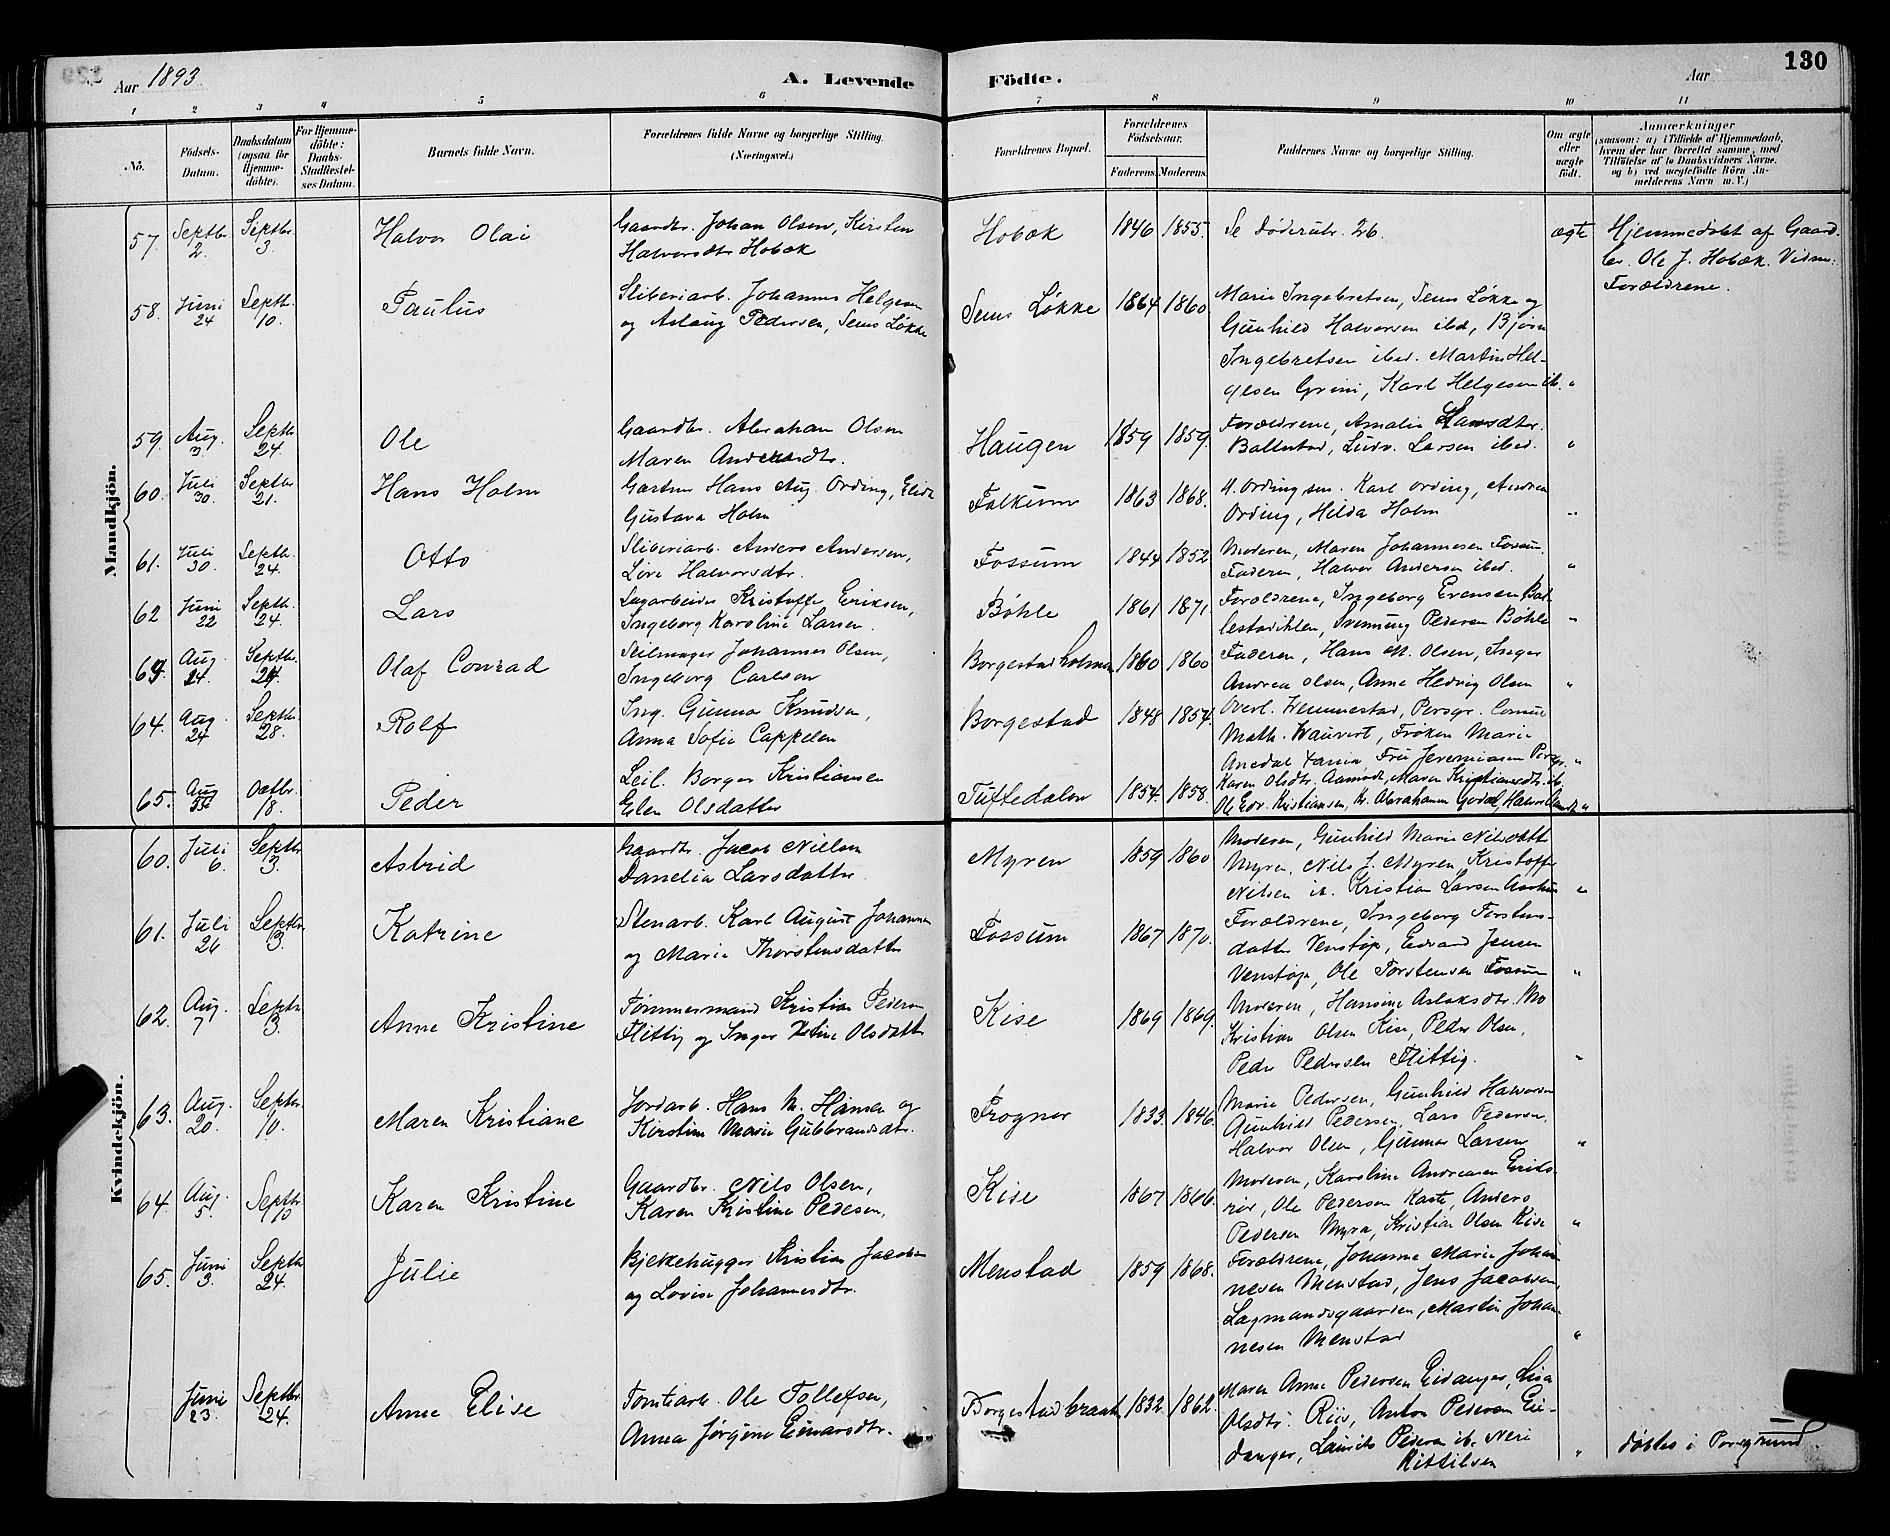 130
Aar 1893.
A. Levende Födte.
Aar
1 2 3 4 5 6 7 8 9 10 11
No.
Födsels-Datum.
Daabsdatum (ogsaa for Hjemme-döbte).
For Hjemme-döbte: Daabs-Stadfæstel-ses Datum.
Barnets fulde Navn.
Forældrenes fulde Navne og borgerlige Stilling. (Næringsvei.)
Forældrenes Bopæl.
Forældrenes Födselsaar.
Faderens. Moderens.
Faddernes Navne og borgerlige Stilling.
Om ægte eller uægte födt.
Anmærkninger
(saasom: a) i Tilfælde af Hjemmedaab,
hvem der har forrettet samme, med
Tilföielse af to Daabsvidners Navne,
og b) ved uægtefödte Börn An-
melderens Navn m. V.)
Mandkjön.
57. Septbr. 2. Septbr. 3. Halvor Olai
Gaardbr. Johan Olsen, Kirsten
Halvorsdtr Hobæk
Hobæk 1846 1855. Se Døderubr. 26. ægte
Hjemmedøbt af Gaard-
br. Ole J. Hobæk. Vidn:
Forældrene.
58. Juni 24 Septb. 10. Paulus
Sliberiarb. Johannes Helgesen
og Aslaug Pedersen, Sems Løkke
Sems Løkke 1864 1860
Marie Ingebretsen, Sems Løkke og
Gunhild Halvorsen ibd, Bjørn
Ingebretsen ibd. Martin Hel-
gesen Grini, Karl Helgesen ib. "
59. Aug. 3. Septb 24. Ole
Gaardbr. Abraham Olsen
Maren Andersdtr.
Haugen 1859 1859.
Forældrene, Amalie Larsdtr.
Ballestad, Ludv. Larsen ibd. "
60. Juli 30. Septbr 21. Hans Holm
Gartner Hans Aug. Ording, Elide
Gustava Holm
Falkum 1863 1868.
A. Ording sen. Karl Ording, Andrea
Ording, Hilda Holm "
61. Juli 30. Septb. 24. Otto
Sliberiarb. Anders Andersen,
Live Halvorsdtr.
Fossum 1844 1852
Moderen, Maren Johannesen Fossum.
Faderen, Halvor Andersen ibd. "
62 Juni 22 Septb. 24. Lars
Sagarbeider Kristoffer Eriksen,
Ingeborg Karoline Larsen.
Bøhle 1861 1871
Forældrene, Ingeborg Evensen Bal-
lestadihlen, Svennung Pedersen Bøhle "
63 Aug. 24. Septbr. 24. Olaf Conrad
Seilmager Johannes Olsen,
Ingeborg Carlsen
Borgestadholmen 1860 1860
Faderen, Hans M. Olsen, Inger
Andrea Olsen, Anna Hedvig Olsen "
64. Aug. 24 Septbr. 28. Rolf
Ing. Gunnar Knudsen,
Anna Sofie Cappelen
Borgestad 1848 1854.
Overl. Hemmestad, Porsgr. Consul
Math. Frøken Marie
Fru Jeremiasen Porsgr. "
65. Aug Octbr. 18. Peder
Borger Kristiansen
Elen Olsdatter
Tuftedalen 1854. 1858.
Karen Olsdtr. Aamodt, Maren Kristiansdtr. ib.
Ole Edv. Kristiansen, Kr. Abrahamsen "
Kvindekjön.
60. Juli 6. Septbr 3. Astrid
Gaardbr. Jacob Nielsen
Danelia Larsdatter
Myren 1859 1860
Moderen, Gunhild Marie Nilsdatter
Myren, Nils J. Myren, Kristoffer
Nilsen ib. Kristian Larsen "
61. Juli 26. Septbr 3. Katrine
Stenarb. Karl August Johannesen
og Marie Thorstensdatter
Fossum 1867 1870.
Forældrene, Ingeborg Torstens-
datter Venstøp, Edvard Jensen
Venstøp, Ole Torstensen Fossum "
62. Aug. 7 Septbr. 3. Anne Kristine
Tømmermand Kristian Pedersen
Flittig og Inger Olsdatter
Kise 1869 1869.
Moderen, Hansine Aslaksdtr. Mo
Kristian Olsen Kise, Peder Olsen,
Peder Pedersen Flittig. "
63. Aug. 20. Septbr 10. Maren Kristiane
Jordarb. Hans M. Hansen og
Kirstine Marie Gulbrandsdtr.
Frogner 1833. 1846.
Marie Pedersen, Gunhild Halvorsen
Gunhild Pedersen, Lars Pedersen,
Halvor Olsen, Gunnar Larsen "
64. Aug. 5. Septbr 10 Karen Kristine
Gaardbr. Nils Olsen,
Karen Kristine Pedesen,
Kise 1867 1866.
Moderen, Karoline Andreasen Eriks-
rør, Ole Pedersen Kaste, Anders
Pedersen Myra, Kristian Olsen Kise "
65. Juni 3. Septbr 24. Julie
Bjelkehugger Kristian Jacobsen
og Lovise Johannesdtr.
Menstad 1859 1868.
Forældrene, Johanne Marie Johan-
nesen Menstad, Jens Jacobsen,
Lagmandsgaarden, Martin Johan-
nesen Menstad "
Juni 23. Septbr. 24. Anne Elise
Tomtearb. Ole Tollefsen,
Anna Jørgine Einarsdtr.
Borgestadbraaten 1832. 1862.
Maren Anne Pedersen Eidanger, Lisa
Olsdtr. Riis, Anton Pedersen Ei-
danger, Laurits Pedersen ib. Neri
Kittilsen "
døbtes i Porsgrund.